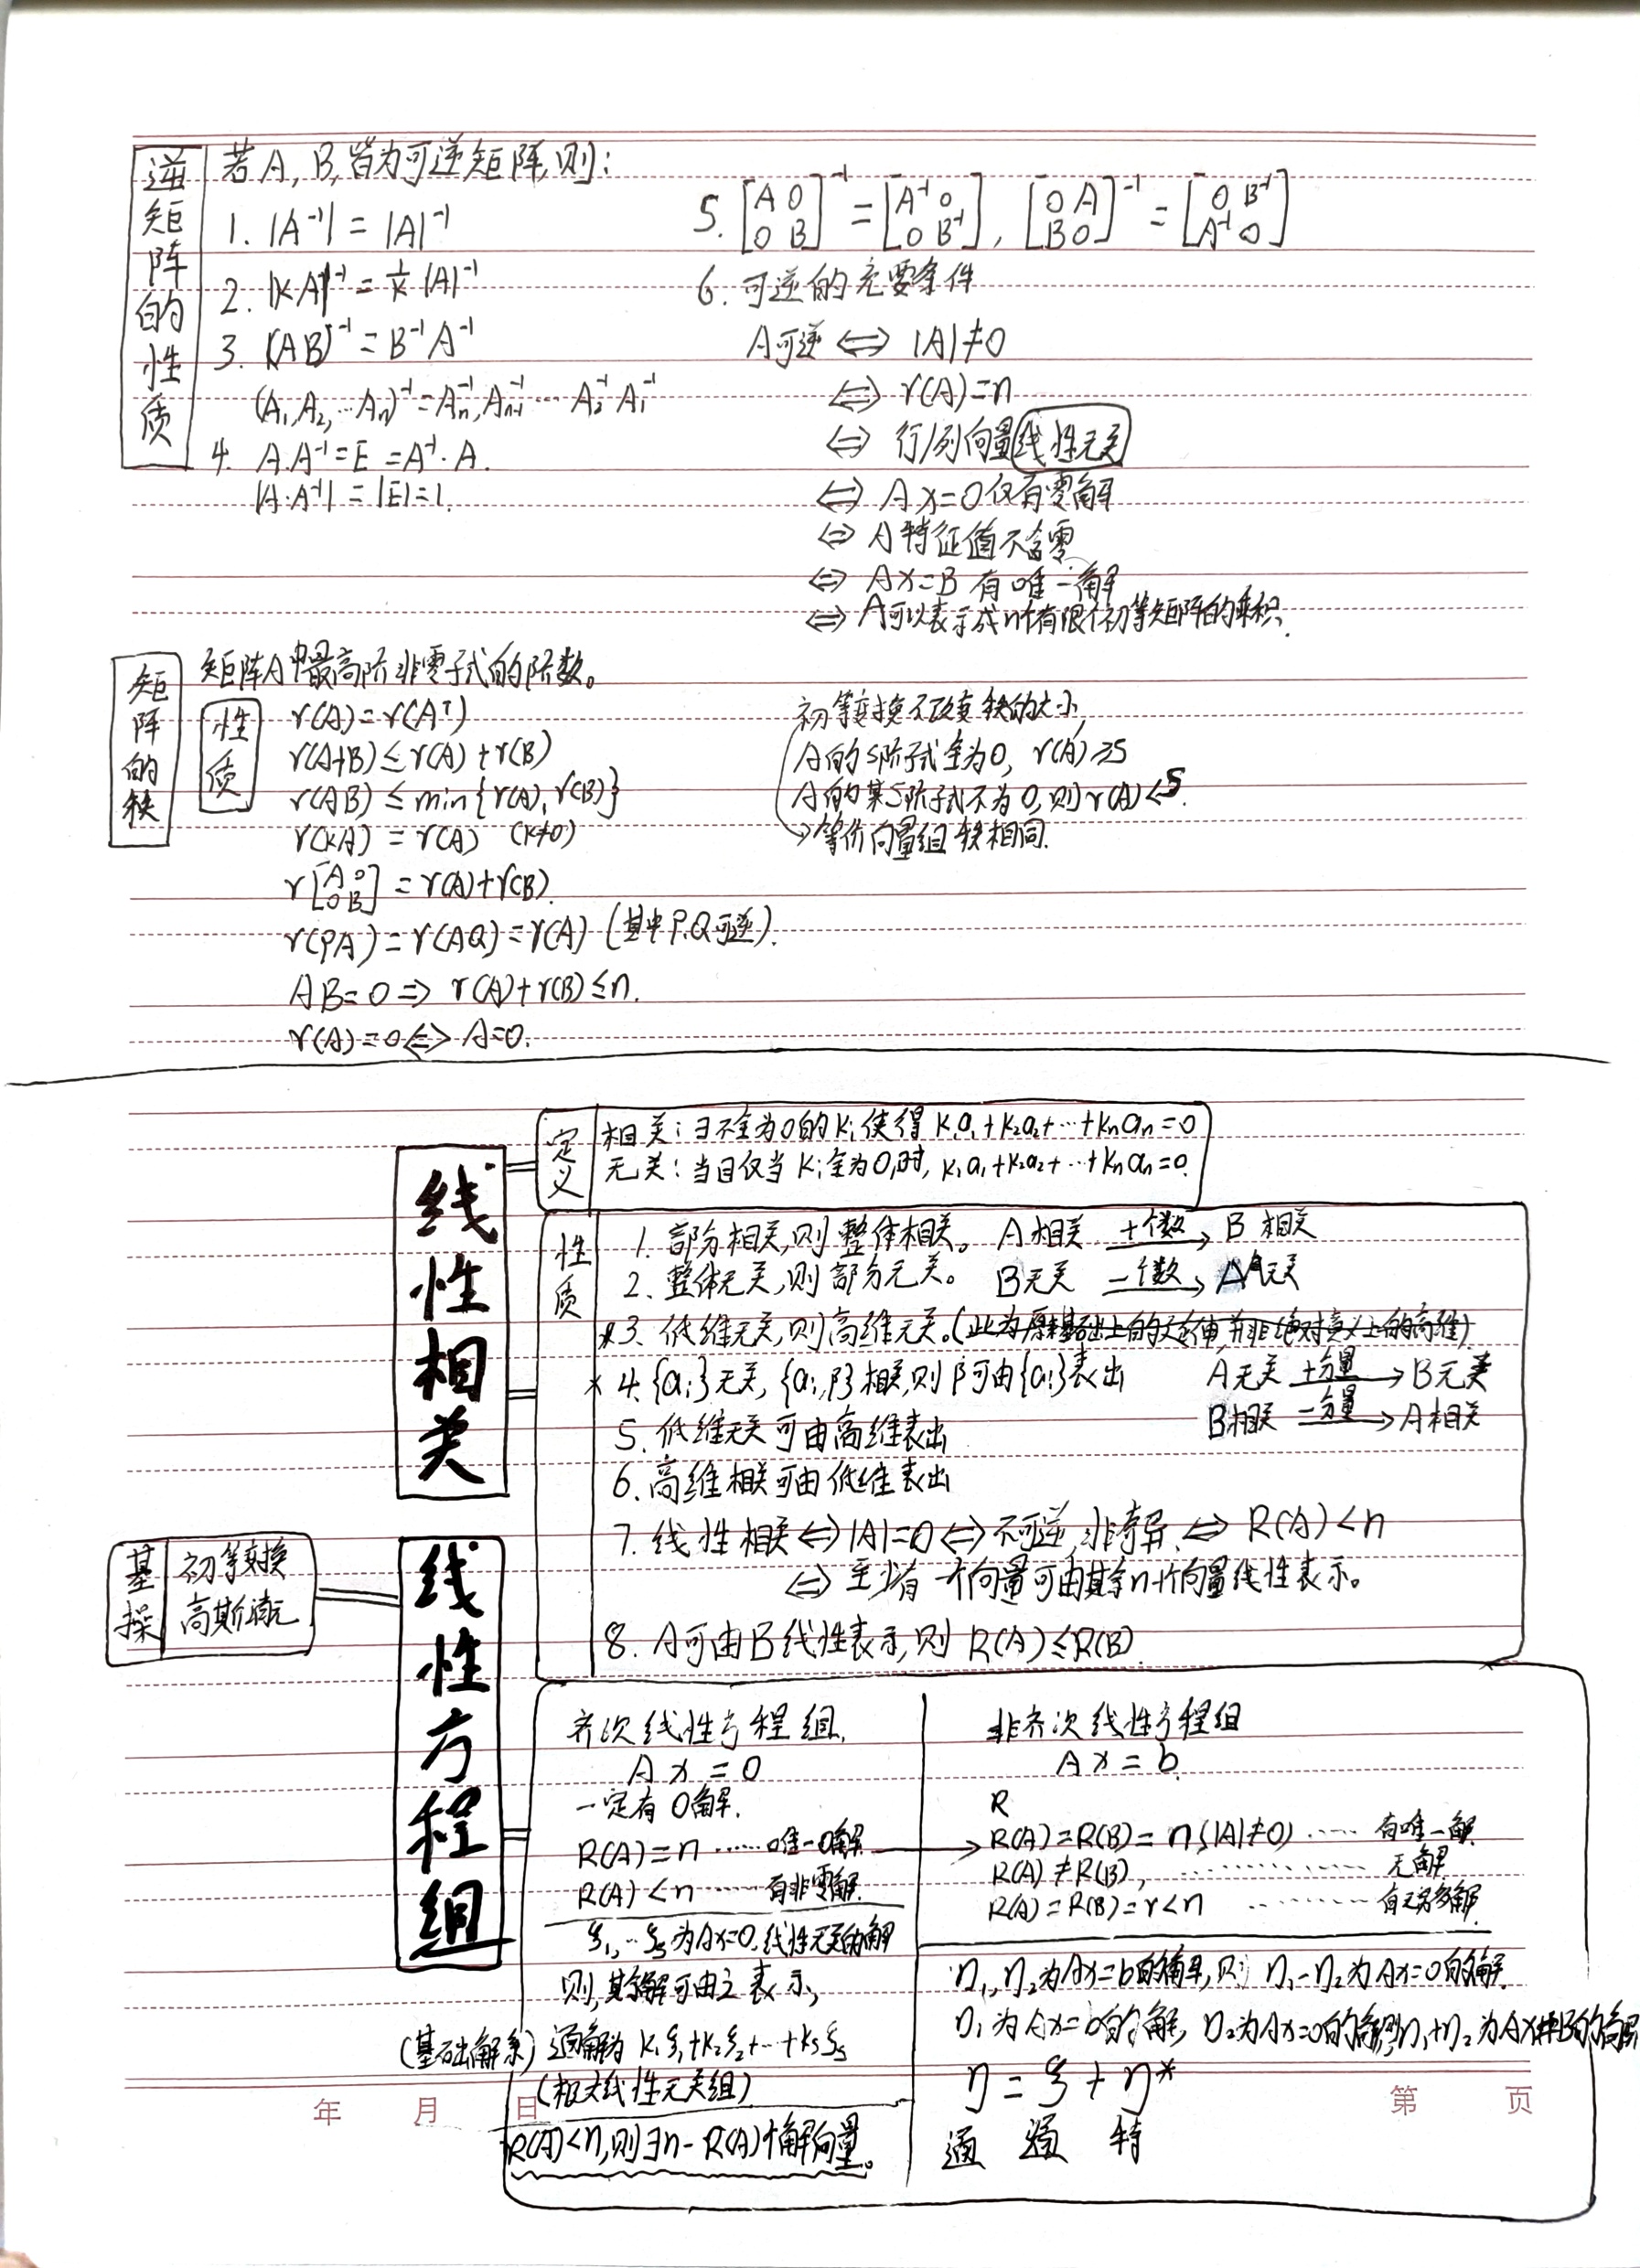 逆矩阵的性质
若A,B,皆为可逆矩阵,则:
1. |A⁻¹| = |A|⁻¹
2. |KA|⁻¹ = 1/K |A|⁻¹
3. (AB)⁻¹ = B⁻¹A⁻¹
(A₁,A₂,…Aₙ)⁻¹ = Aₙ⁻¹,Aₙ₋₁⁻¹ … A₂⁻¹ A₁⁻¹
4. A.A⁻¹ = E = A⁻¹·A.
|A·A⁻¹| = |E| = 1.
5. [A 0; 0 B]⁻¹ = [A⁻¹ 0; 0 B⁻¹], [0 A; B 0]⁻¹ = [0 B⁻¹; A⁻¹ 0]
6. 可逆的充要条件
A可逆 ⇔ |A|≠0
⇔ r(A)=n
⇔ 行/列向量线性无关
⇔ Ax=0仅有零解
⇔ A特征值不含零
⇔ Ax=B 有唯一解
⇔ A可以表示成n个有限个初等矩阵的乘积.
矩阵的秩
矩阵A中最高阶非零子式的阶数。
性质
r(A)=r(Aᵀ)
r(A+B)≤r(A)+r(B)
r(AB)≤min{r(A),r(B)}
r(KA)=r(A) (K≠0)
r[A 0; 0 B]=r(A)+r(B).
r(PA)=r(AQ)=r(A) (其中P,Q可逆).
AB=0 ⇒ r(A)+r(B)≤n.
r(A)=0 ⇔ A=0.
初等变换不改变秩的大小,
A的S阶子式全为0, r(A)≥S
A的某S阶子式不为0,则r(A)<S.
→等价向量组秩相同.
线性相关
定义
相关:∃不全为0的Kᵢ使得 K₁a₁+K₂a₂+…+Kₙaₙ=0
无关:当且仅当Kᵢ全为0,时, K₁a₁+K₂a₂+…+Kₙaₙ=0.
性质
1. 部分相关,则整体相关。 A相关 +个数→ B相关
2. 整体无关,则部分无关。 B无关 -个数→ A无关
*3. 低维无关,则高维无关。(此为原基础上的延伸,并非绝对意义上的高维)
*4. {aᵢ}无关, {aᵢ,β}相关,则β可由{aᵢ}表出
A无关 +分量→ B无关
5. 低维无关可由高维表出
B相关 -分量→ A相关
6. 高维相关可由低维表出
7. 线性相关⇔|A|=0⇔不可逆,非奇异,⇔ R(A)<n
⇔ 至少有一个向量可由其余n-1个向量线性表示。
8. A可由B线性表示,则 R(A)≤R(B).
基操
初等变换
高斯消元
线性方程组
齐次线性方程组.
Ax=0
一定有0解.
R(A)=n ……唯一0解
R(A)<n ……有非零解.
ξ₁,…ξₛ为Ax=0,线性无关的解
则,其解可由之表示,
(基础解系) 通解为 K₁ξ₁+K₂ξ₂+…+Kₛξₛ
(极大线性无关组)
R(A)<n,则∃n-R(A)个解向量。
非齐次线性方程组
Ax=b
R
R(A)=R(B)=n,(|A|≠0) …… 有唯一解
R(A)≠R(B), …… 无解
R(A)=R(B)=r<n …… 有无穷多解.
η₁,η₂为Ax=b的解,则 η₁-η₂为Ax=0的解.
η₁为Ax=b的解, η₂为Ax=0的解,则η₁+η₂为Ax=B的解
η = ξ + η*
通 通 特
年 月 日
第 页